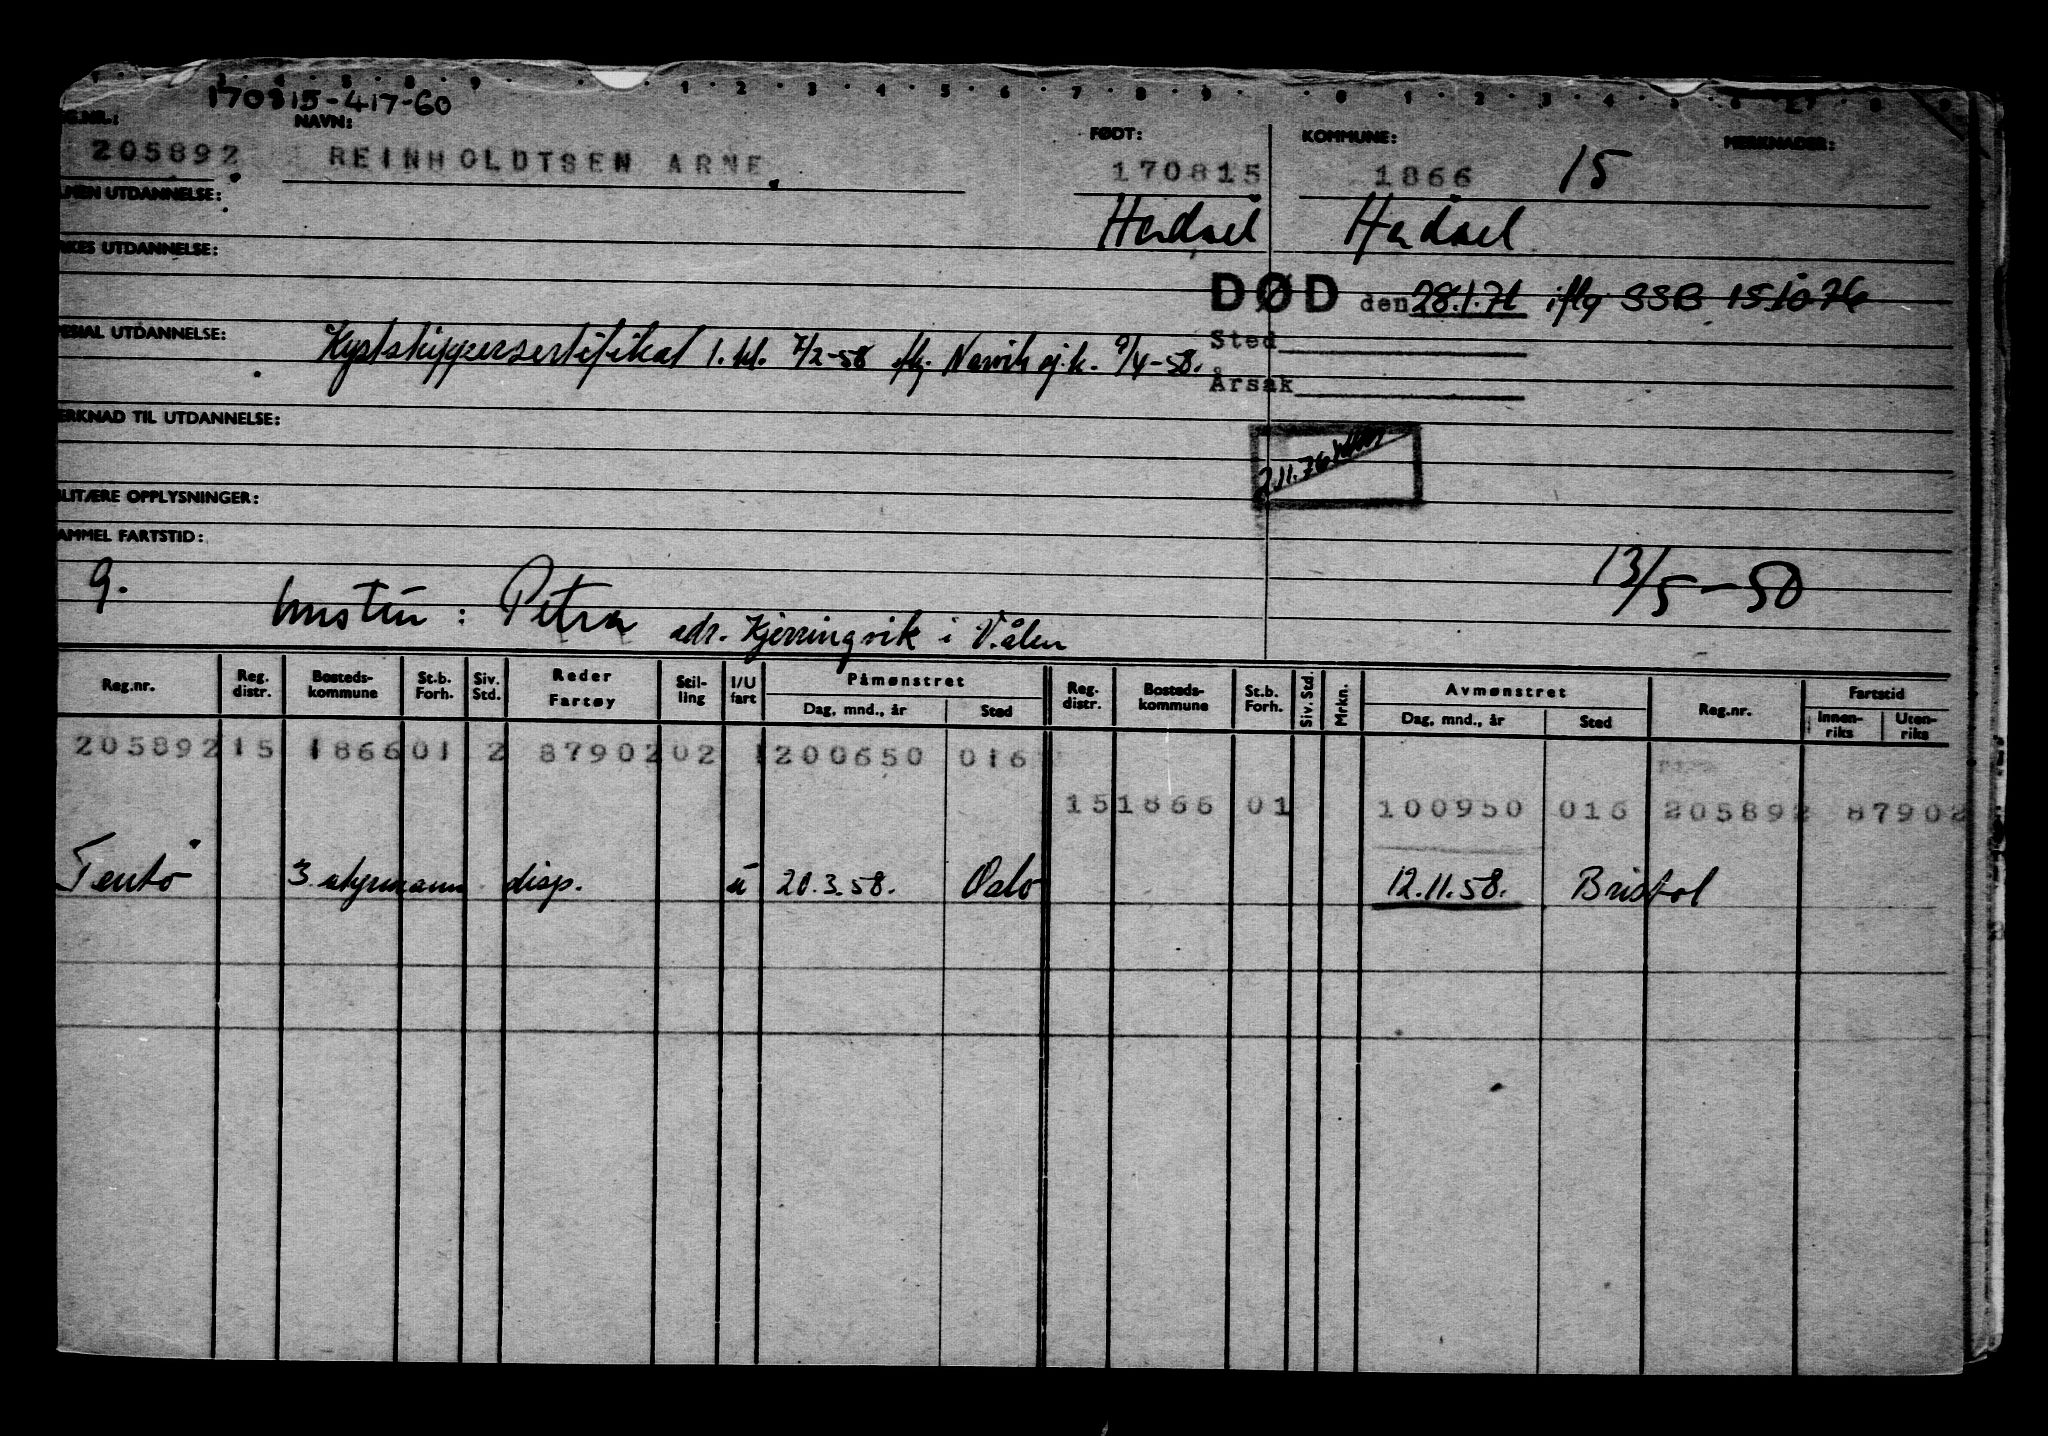 170815-417-60
G.NR.: NAVN: FØDT: KOMMUNE: MERKNADER:
205892 REINHOLDTSEN ARNE 170815 1866 15
LMEN UTDANNELSE: Hadsel Hadsel
RKES UTDANNELSE:
DØD den 28.1.71 iflg SSB 15.10.76
PESIAL UTDANNELSE: Kystskippersertifikat 1. kl. 7/2-58 iflg. Narvik sj.k. 9/4-58.
Sted
Årsak
ERKNAD TIL UTDANNELSE:
2.11.76
ILITÆRE OPPLYSNINGER:
AMMEL FARTSTID:
9. hustru: Petra adr. Kjerringvik i V.ålen 13/5-50
Reg.nr. Reg. distr. Bosteds-kommune St.b. Forh. Siv. Std. Reder Fartøy Stil-ling I/U fart Påmønstret Dag, mnd., år Sted Reg. distr. Bosteds-kommune St.b. Forh. Siv. Std. Mrkn. Avmønstret Dag, mnd., år Sted Reg.nr. Fartstid Innen-riks Uten-riks
205892 15 1866 01 2 87902 02 1 200650 016
15 1866 01 100950 016 205892 87902
Tento 3 styrmann disp. u 20.3.58. Oslo 12.11.58. Bristol